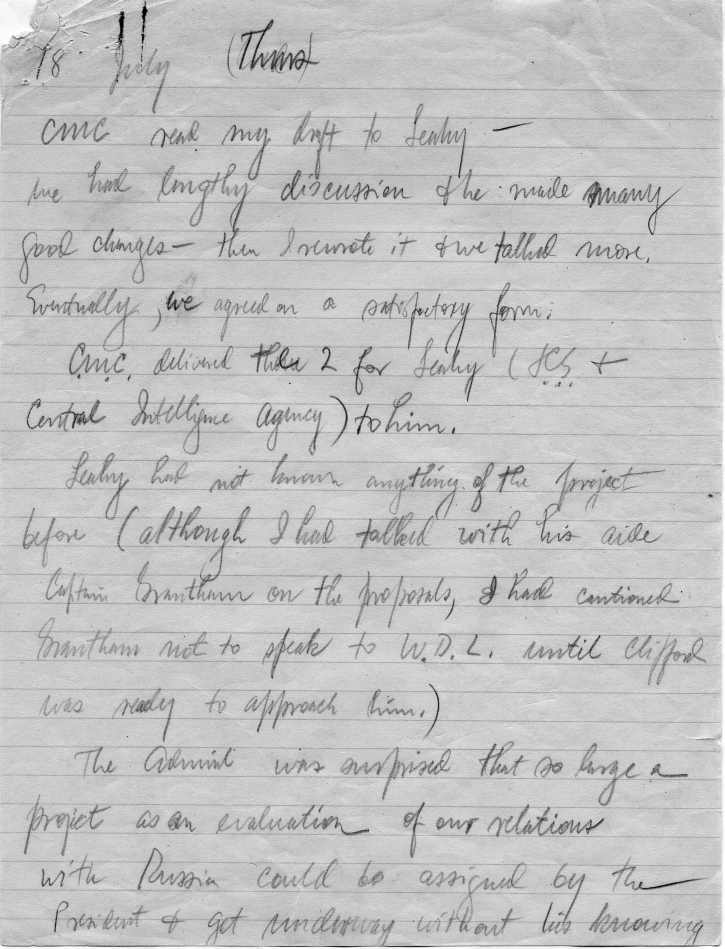 18 July (Thurs)
CMC read my draft to Leahy —
we had lengthy discussion & he made many
good changes — then I rewrote it & we talked more.
Eventually, we agreed on a satisfactory form.
C.M.C. delivered the 2 for Leahy (JCS +
Central Intelligence Agency) to him.
Leahy had not known anything of the project
before (although I had talked with his aide
Captain Grantham on the proposals, I had cautioned
Grantham not to speak to W.D.L. until Clifford
was ready to approach him.)
The Admiral was surprised that so large a
project as an evaluation of our relations
with Russia could be assigned by the
President & get underway without his knowing